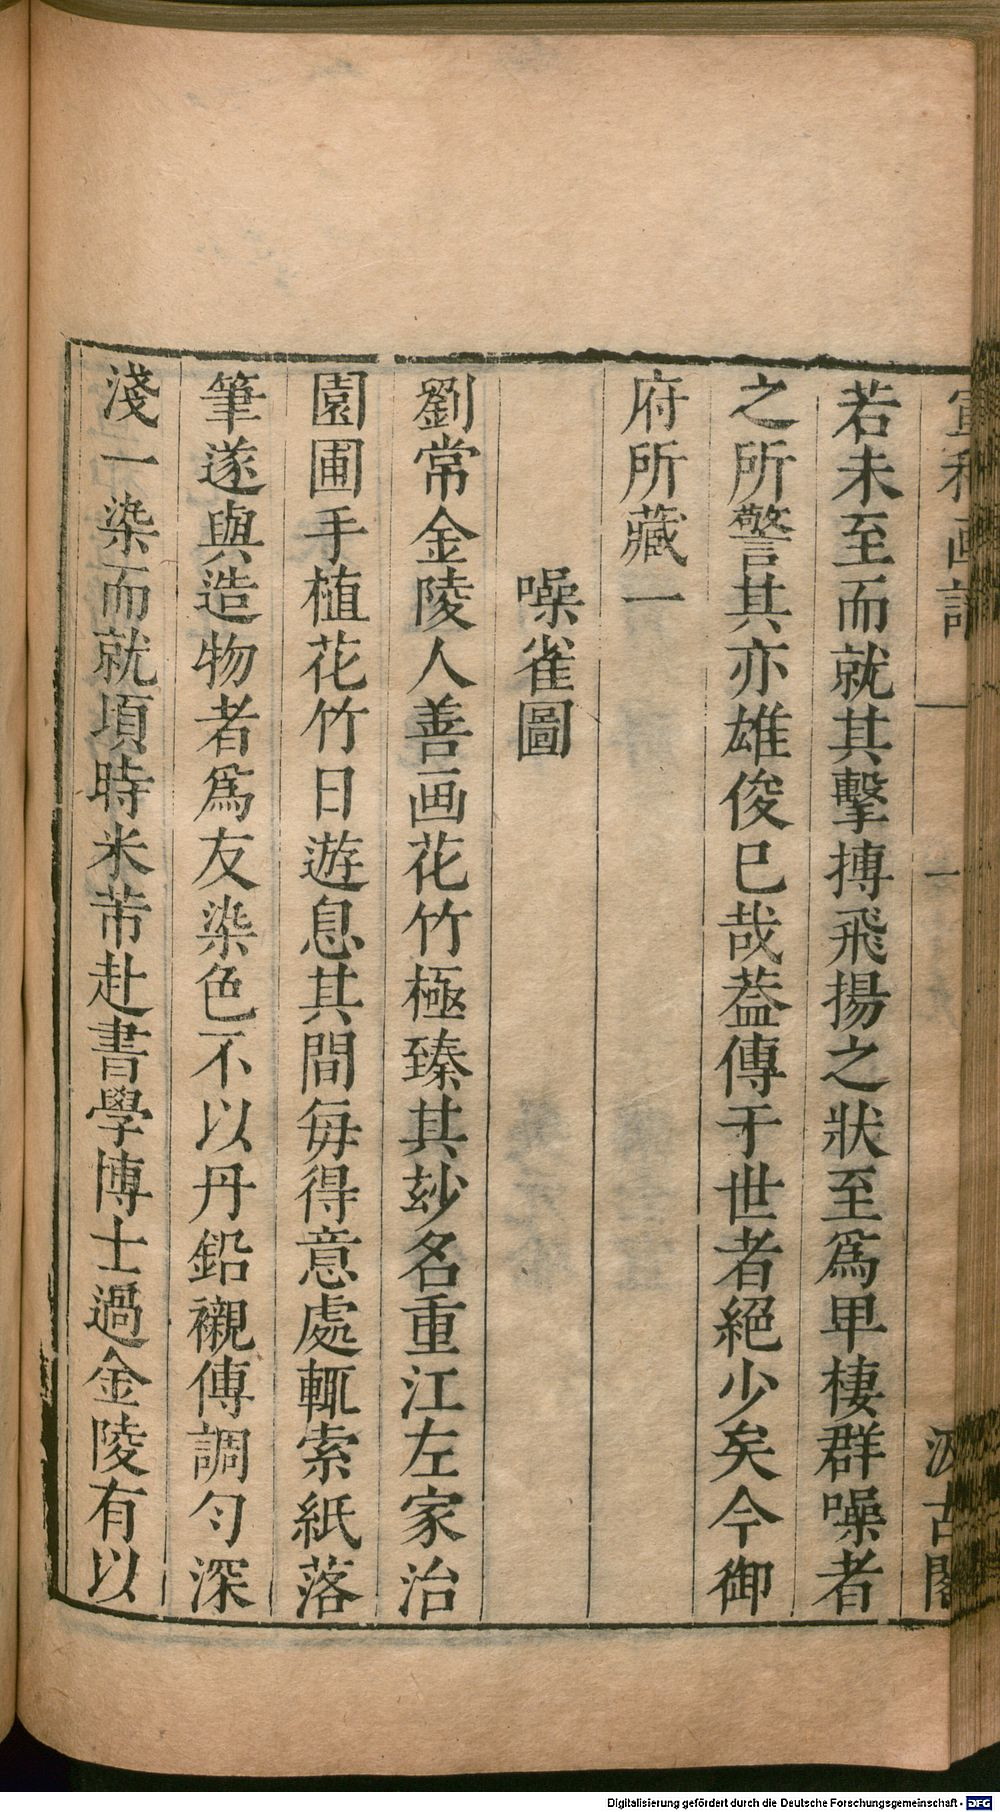 宣和画譜 一 汲古閣
若未至而就其擊摶飛揚之狀至爲甲棲群噪者
之所警其亦雄俊已哉葢傳于世者絕少矣今御
府所藏一
噪雀圖
劉常金陵人善画花竹極臻其玅名重江左家治
園圃手植花竹日遊息其間每得意處輒索紙落
筆遂與造物者爲友染色不以丹鉛襯傅調勻深
淺一染而就頃時米芾赴書學博士過金陵有以
Digitalisierung gefördert durch die Deutsche Forschungsgemeinschaft - DFG